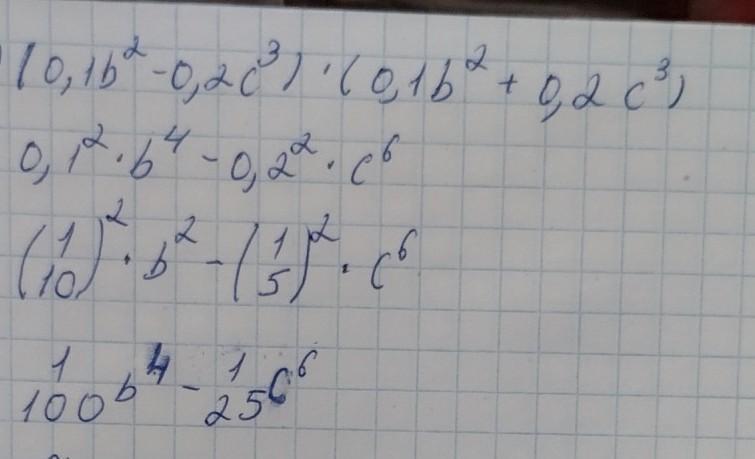 (0,1b² - 0,2c³) · (0,1b² + 0,2c³)
0,1² · b⁴ - 0,2² · c⁶
(1/10)² · b² - (1/5)² · c⁶
1/100 b⁴ - 1/25 c⁶